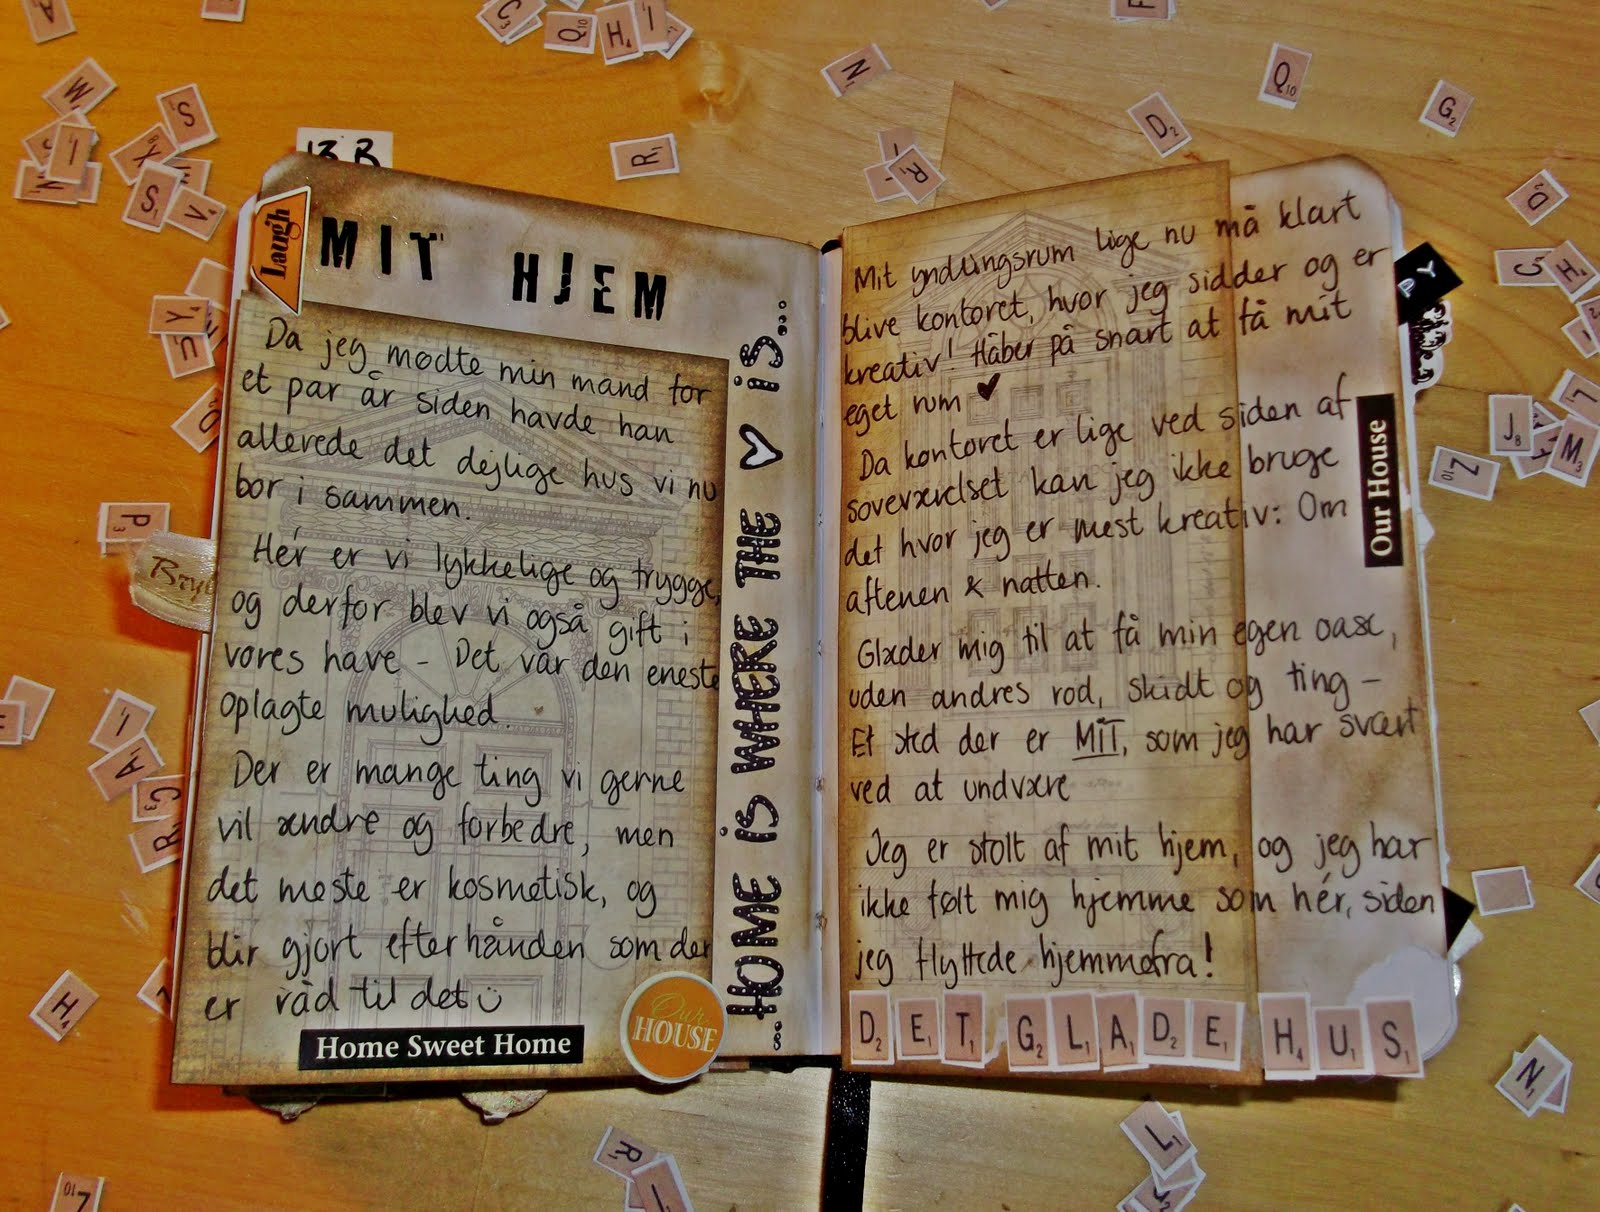 13 B
Laugh
MIT HJEM
Da jeg mødte min mand for
et par år siden havde han
allerede det dejlige hus vi nu
bor i sammen.
Hér er vi lykkelige og trygge,
og derfor blev vi også gift i
vores have - Det var den eneste
oplagte mulighed.
Der er mange ting vi gerne
vil ændre og forbedre, men
det meste er kosmetisk, og
blir gjort efterhånden som der
er råd til det
Home Sweet Home
Our
HOUSE
...HOME iS WHERE THE ♥ iS...
Mit yndlingsrum lige nu må klart
blive kontoret, hvor jeg sidder og er
kreativ! Håber på snart at få mit
eget rum ♥
Da kontoret er lige ved siden af
soveværelset kan jeg ikke bruge
det hvor jeg er mest kreativ: Om
aftenen & natten.
Glæder mig til at få min egen oase,
uden andres rod, skidt og ting -
Et sted der er MIT, som jeg har svært
ved at undvære
Jeg er stolt af mit hjem, og jeg har
ikke følt mig hjemme som hér, siden
jeg flyttede hjemmefra!
DET GLADE HUS
Our House